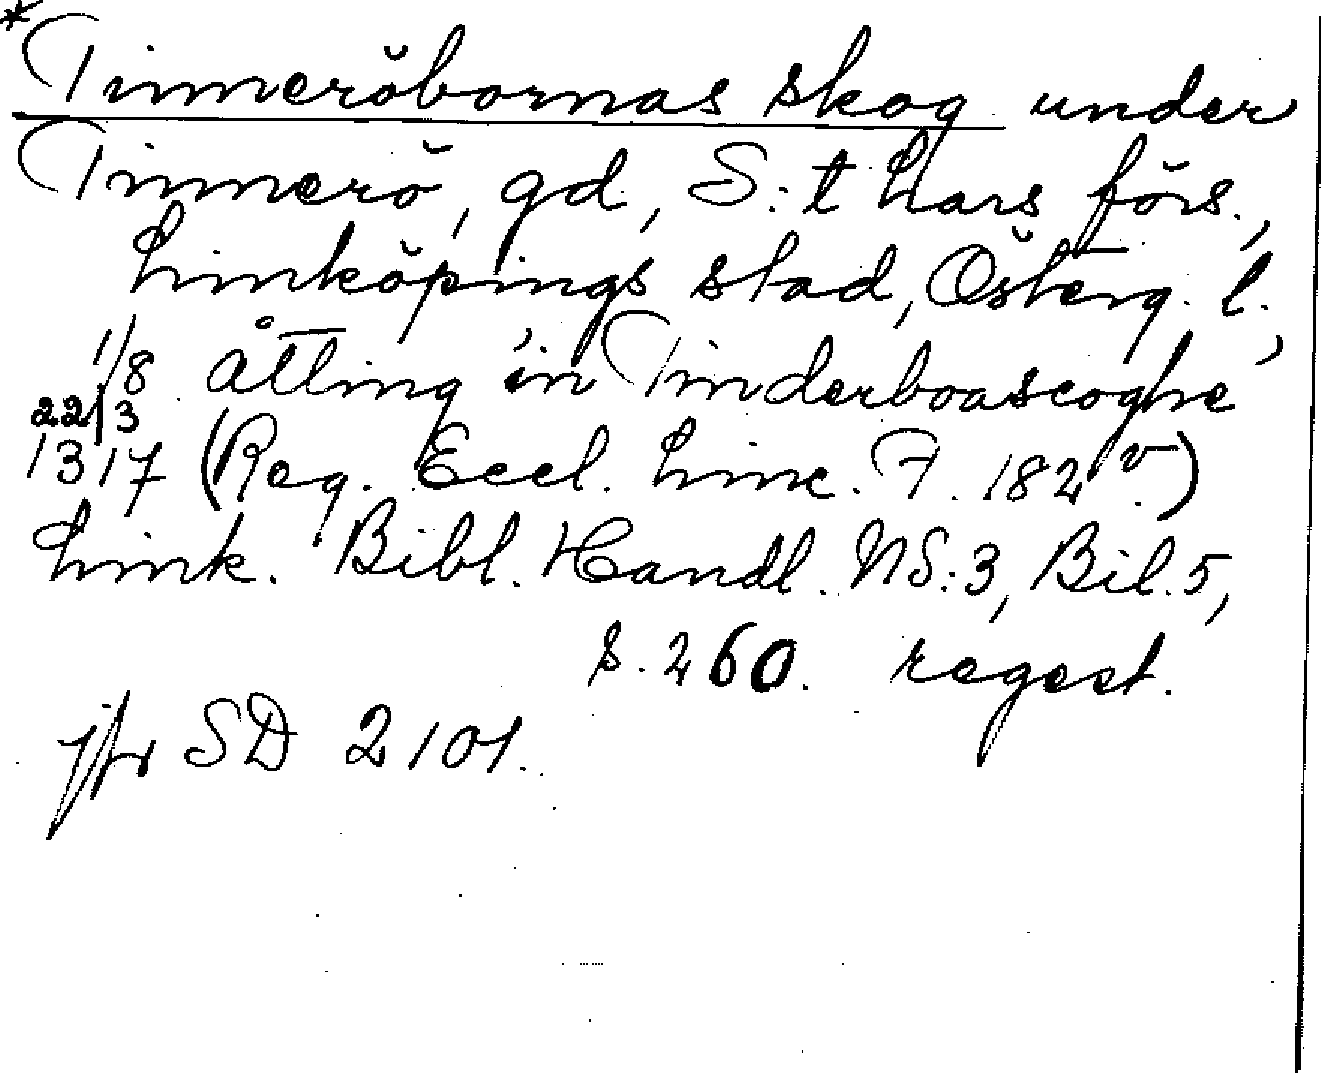 *Tinneröbornas skog under
Tinnerö, gd, S:t Lars förs.,
Linköpings stad, Österg. l.,
1/8 åtting in Tinderboascoghe
22/3
1317 (Reg. Eccl. Linc. F. 182 v.)
Link. Bibl. Handl. NS:3, Bil. 5,
s. 260. regest.
jfr SD 2101.